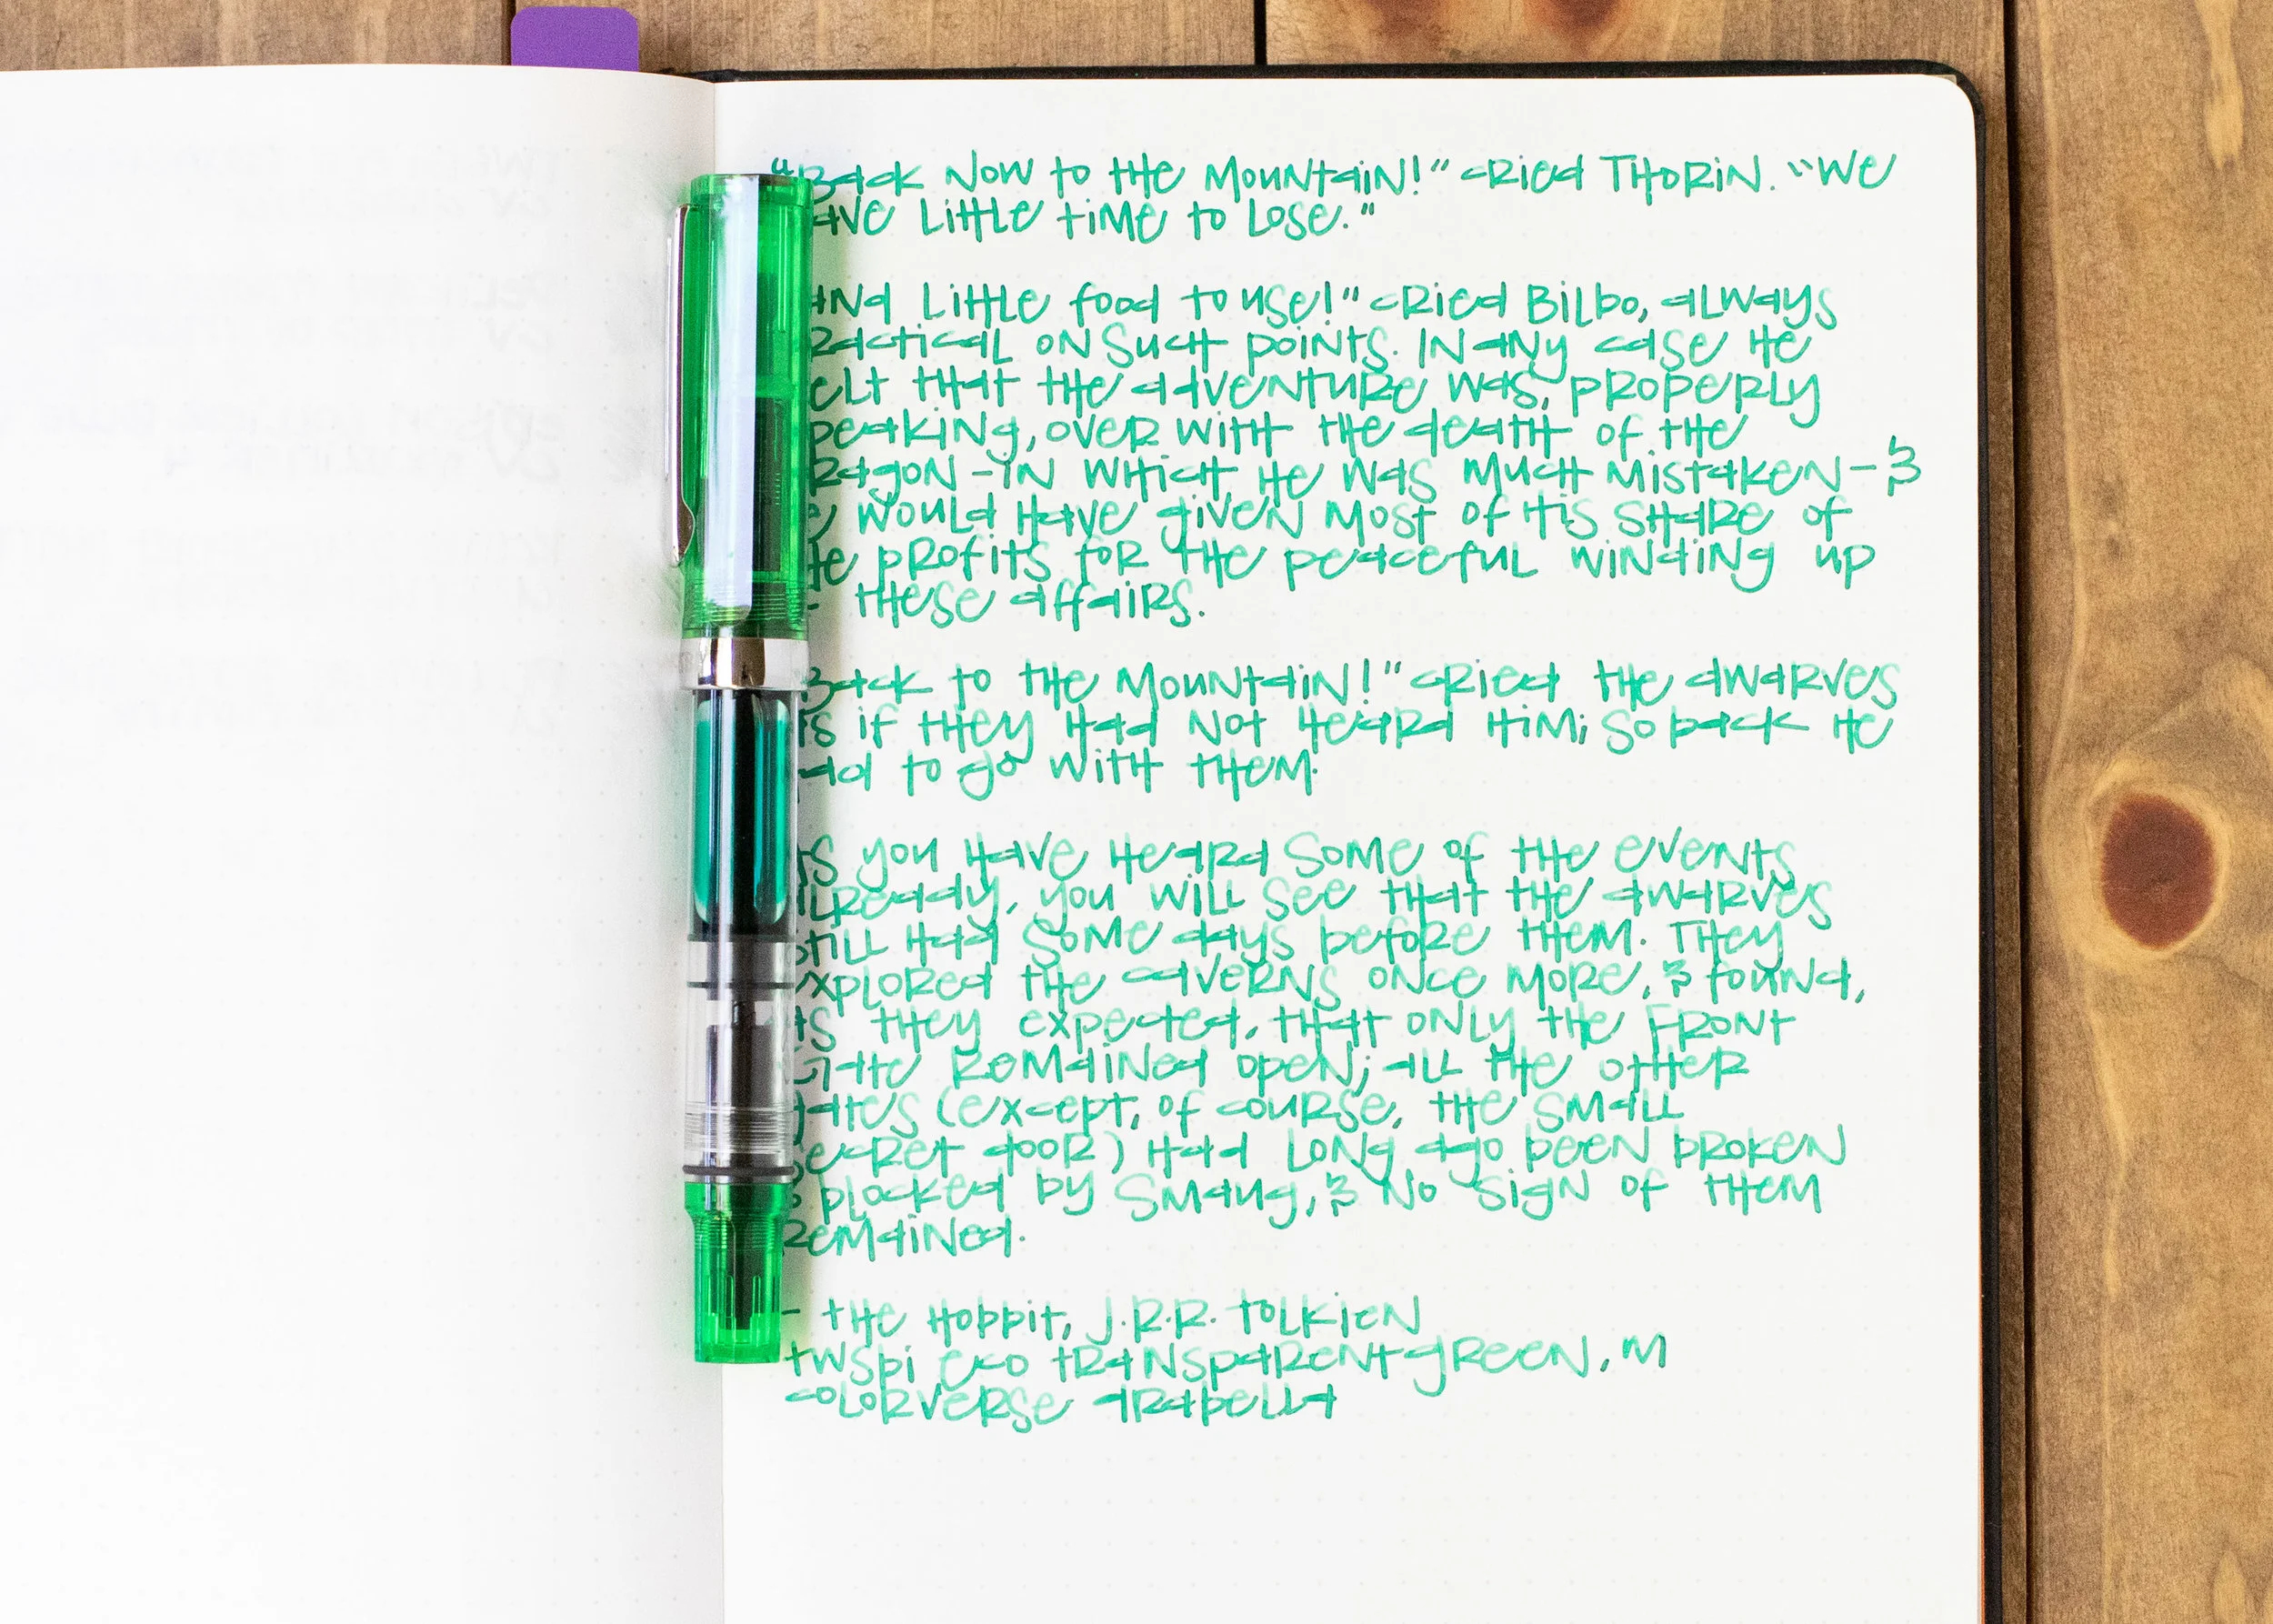 "Back now to the Mountain!" cried Thorin. "We
ave little time to lose."
and little food to use!" cried Bilbo, always
ractical on such points. In any case he
elt that the adventure was, properly
peaking, over with the death of the
ragon - in which he was much mistaken - &
e would have given most of his share of
he profits for the peaceful winding up
these affairs.
Back to the Mountain!" cried the dwarves
as if they had not heard him; so back he
had to go with them.
As you have heard some of the events
already, you will see that the dwarves
still had some days before them. They
explored the caverns once more, & found,
as they expected, that only the Front
Gate remained open; all the other
gates (except, of course, the small
secret door) had long ago been broken
& blocked by Smaug, & no sign of them
remained.
- the Hobbit, J.R.R. Tolkien
twsbi eco transparent green, m
colorverse arabella